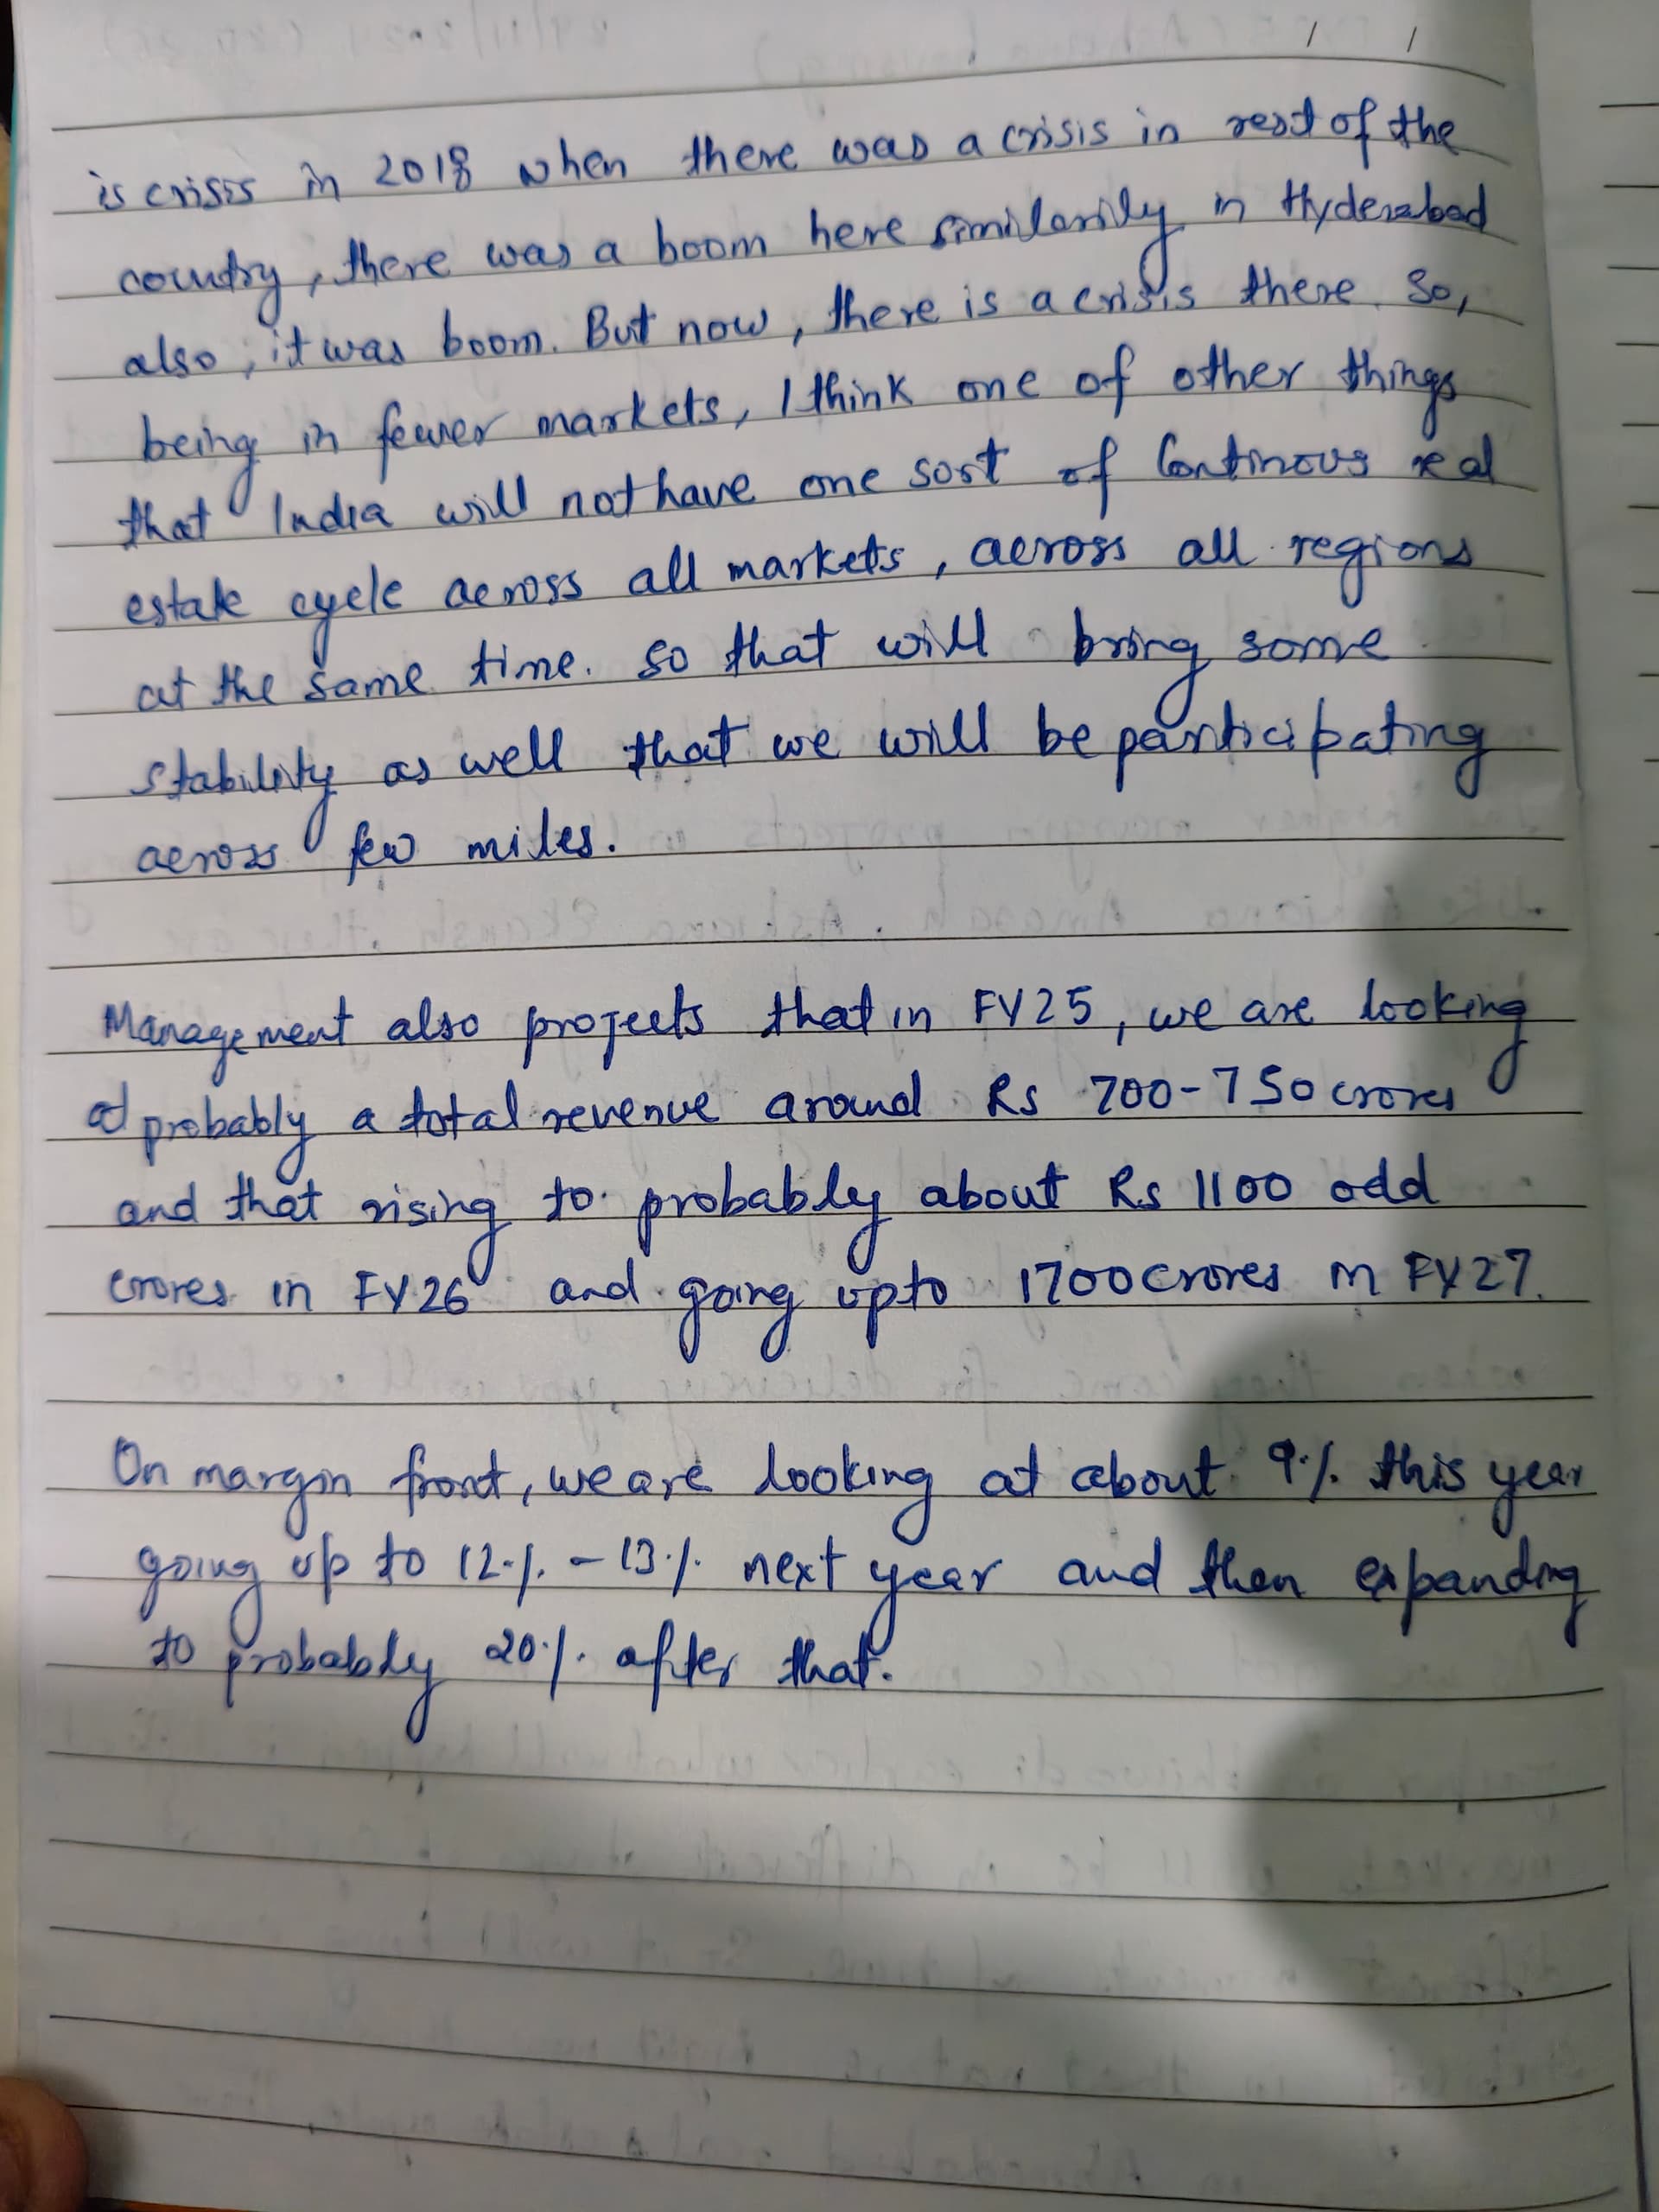 is crisis in 2018 when there was a crisis in rest of the
country, there was a boom here similarily in Hyderabad
also, it was boom. But now, there is a crisis there. So,
being in fewer markets, I think one of other things
that India will not have one sort of Continous real
estate cycle across all markets, across all regions
at the same time. so that will bring some
stability as well that we will be participating
across few miles.
Management also projects that in FY25, we are looking
at probably a total revenue around Rs 700-750 crores
and that rising to probably about Rs 1100 odd
crores in FY26 and going upto 1700 crores in FY27.
On margin front, we are looking at about 9% this year
going up to 12% - 13% next year and then expanding
to probably 20% after that.